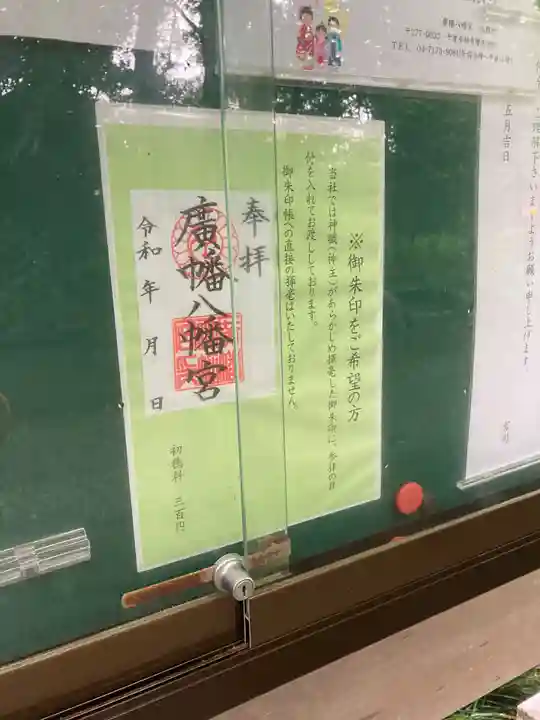 五月吉日
※御朱印をご希望の方
当社では神職(神主)があらかじめ揮毫した御朱印に、参拝の日
付を入れてお渡ししております。
御朱印帳への直接の揮毫はいたしておりません。
奉拝
廣幡八幡宮
令和 年 月 日
初穂料 三百円